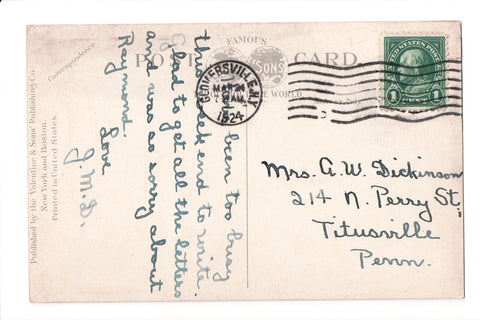 Correspondence
FAMOUS
POST CARD
SONS
THE WORLD
GLOVERSVILLE, N.Y.
MAY 24
7 AM
1924
UNITED STATES POSTAGE
1 1
Mrs. A. W. Dickinson
214 N. Perry St.
Titusville
Penn.
been too busy
this week end to write.
Glad to get all the letters
and was so sorry about
Raymond.
Love
Published by the Valentine & Sons' Publishing Co.
New York and Boston.
Printed in United States